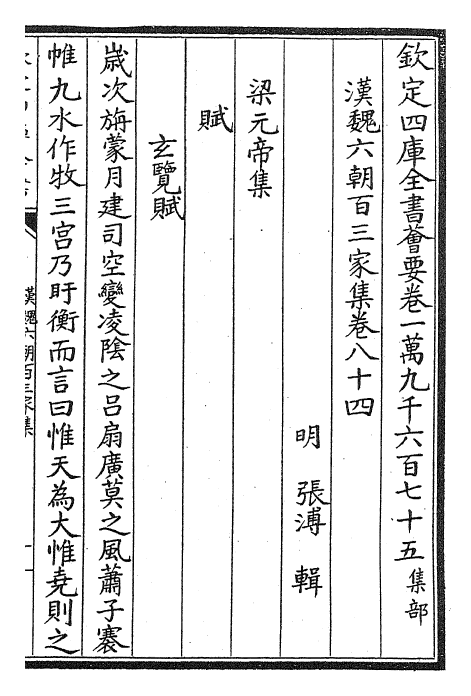 欽定四庫全書薈要卷一萬九千六百七十五集部
漢魏六朝百三家集卷八十四
明 張溥 輯
梁元帝集
賦
玄覽賦
歲次旃蒙月建司空變凌陰之呂扇廣莫之風蕭子褰
帷九水作牧三宮乃盱衡而言曰惟天為大惟堯則之
漢魏六朝百三家集